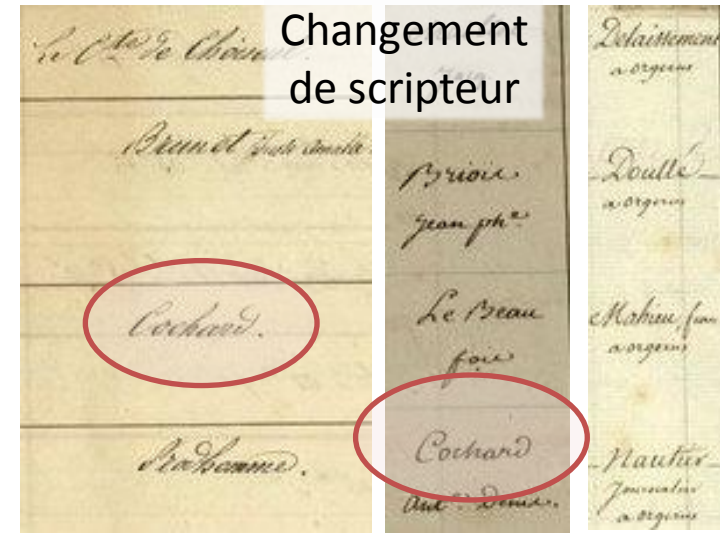 Changement
de scripteur
Le Cte de Choiseul.
Brunot
Cochard.
Prodhomme.
Brioie
Jean phe
Le Beau
Cochard
Ant. Denis.
Delaissement
a orgerus
Doullé
a orgerus
Mahieu, jean
a orgerus
Nautier
Journalier
a orgerus